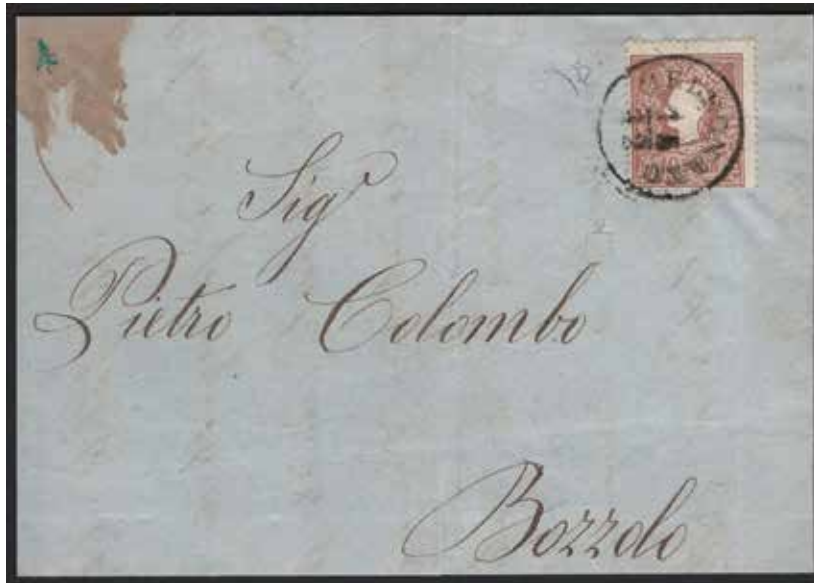 Sigr
Pietro Colombo
Bozzolo